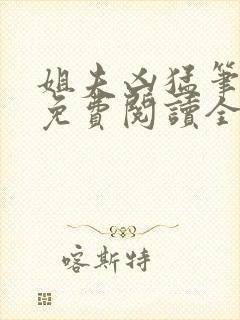 姐夫凶猛筆
免費閱讀全
喀斯特